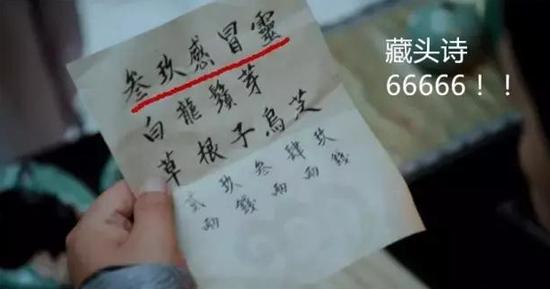 叁玖感冒靈
白龍鬚芽
草根子烏芝
貳玖叁肆玖
兩錢兩兩錢
藏头诗
66666！！